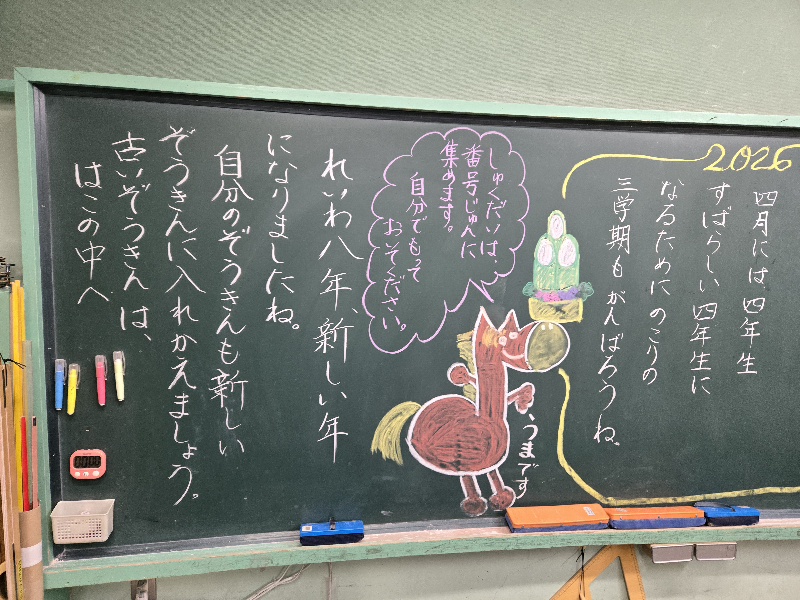 2026
四月には 四年生
すばらしい 四年生に
なるために のこりの
三学期も がんばろうね。
うまです
しゅくだいは、
番号じゅんに
集めます。
自分でもって
おそください。
れいわ八年、新しい年
になりましたね。
自分のぞうきんも新しい
ぞうきんに入れかえましょう。
古いぞうきんは、
はこの中へ